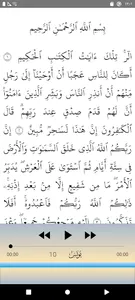 بِسْمِ ٱللَّهِ ٱلرَّحْمَٰنِ ٱلرَّحِيمِ
الٓرۚ تِلْكَ ءَايَٰتُ ٱلْكِتَٰبِ ٱلْحَكِيمِ ۝١
أَكَانَ لِلنَّاسِ عَجَبًا أَنْ أَوْحَيْنَآ إِلَىٰ رَجُلٍ
مِّنْهُمْ أَنْ أَنذِرِ ٱلنَّاسَ وَبَشِّرِ ٱلَّذِينَ ءَامَنُوٓا۟
أَنَّ لَهُمْ قَدَمَ صِدْقٍ عِندَ رَبِّهِمْۗ قَالَ
ٱلْكَٰفِرُونَ إِنَّ هَٰذَا لَسَٰحِرٌ مُّبِينٌ ۝٢ إِنَّ
رَبَّكُمُ ٱللَّهُ ٱلَّذِى خَلَقَ ٱلسَّمَٰوَٰتِ وَٱلْأَرْضَ
فِى سِتَّةِ أَيَّامٍ ثُمَّ ٱسْتَوَىٰ عَلَى ٱلْعَرْشِۖ يُدَبِّرُ
ٱلْأَمْرَۖ مَا مِن شَفِيعٍ إِلَّا مِنۢ بَعْدِ إِذْنِهِۦۚ
ذَٰلِكُمُ ٱللَّهُ رَبُّكُمْ فَٱعْبُدُوهُۚ أَفَلَا
تَذَكَّرُونَ ۝٣ إِلَيْهِ مَرْجِعُكُمْ جَمِيعًاۖ وَعْدَ
00:00
10 يُونُس
00:00